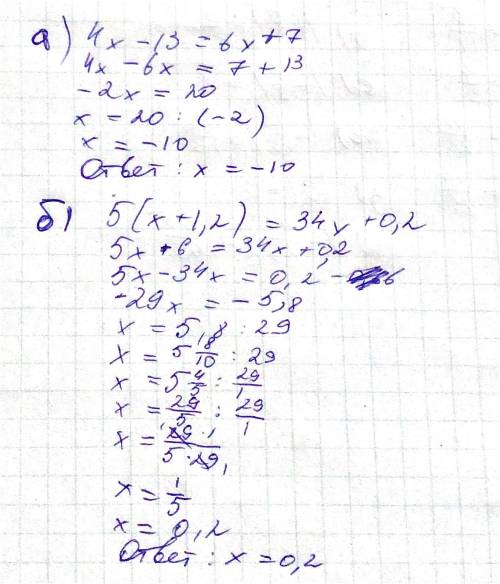 а) 4x - 13 = 6x + 7
4x - 6x = 7 + 13
- 2x = 20
x = 20 : (-2)
x = -10
Ответ : x = -10
б) 5(x + 1,2) = 34x + 0,2
5x + 6 = 34x + 0,2
5x - 34x = 0,2 - 6
-29x = - 5,8
x = 5,8 : 29
x = 5 8/10 : 29
x = 5 4/5 : 29/1
x = 29/5 : 29/1
x = 29·1/5·29
x = 1/5
x = 0,2
Ответ : x = 0,2